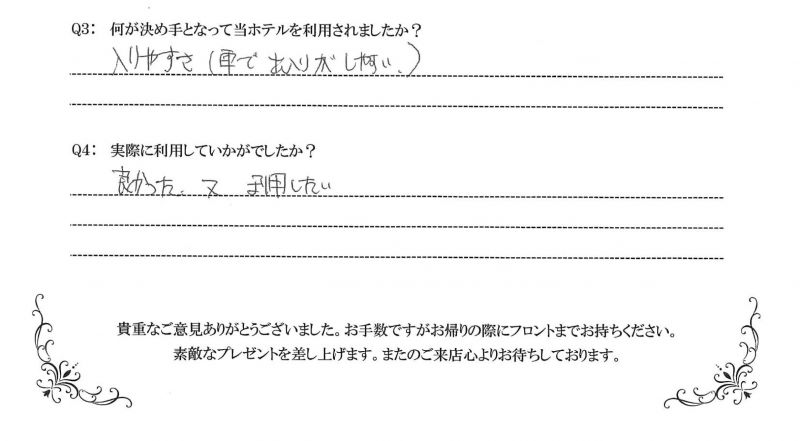 Q3: 何が決め手となって当ホテルを利用されましたか?
入りやすさ(車で出入りがしやすい。)
Q4: 実際に利用していかがでしたか?
良かった。又 利用したい
貴重なご意見ありがとうございました。お手数ですがお帰りの際にフロントまでお持ちください。
素敵なプレゼントを差し上げます。またのご来店心よりお待ちしております。